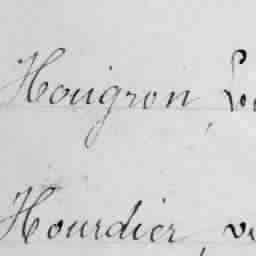 Hougron, Lo
Hourdier, ve